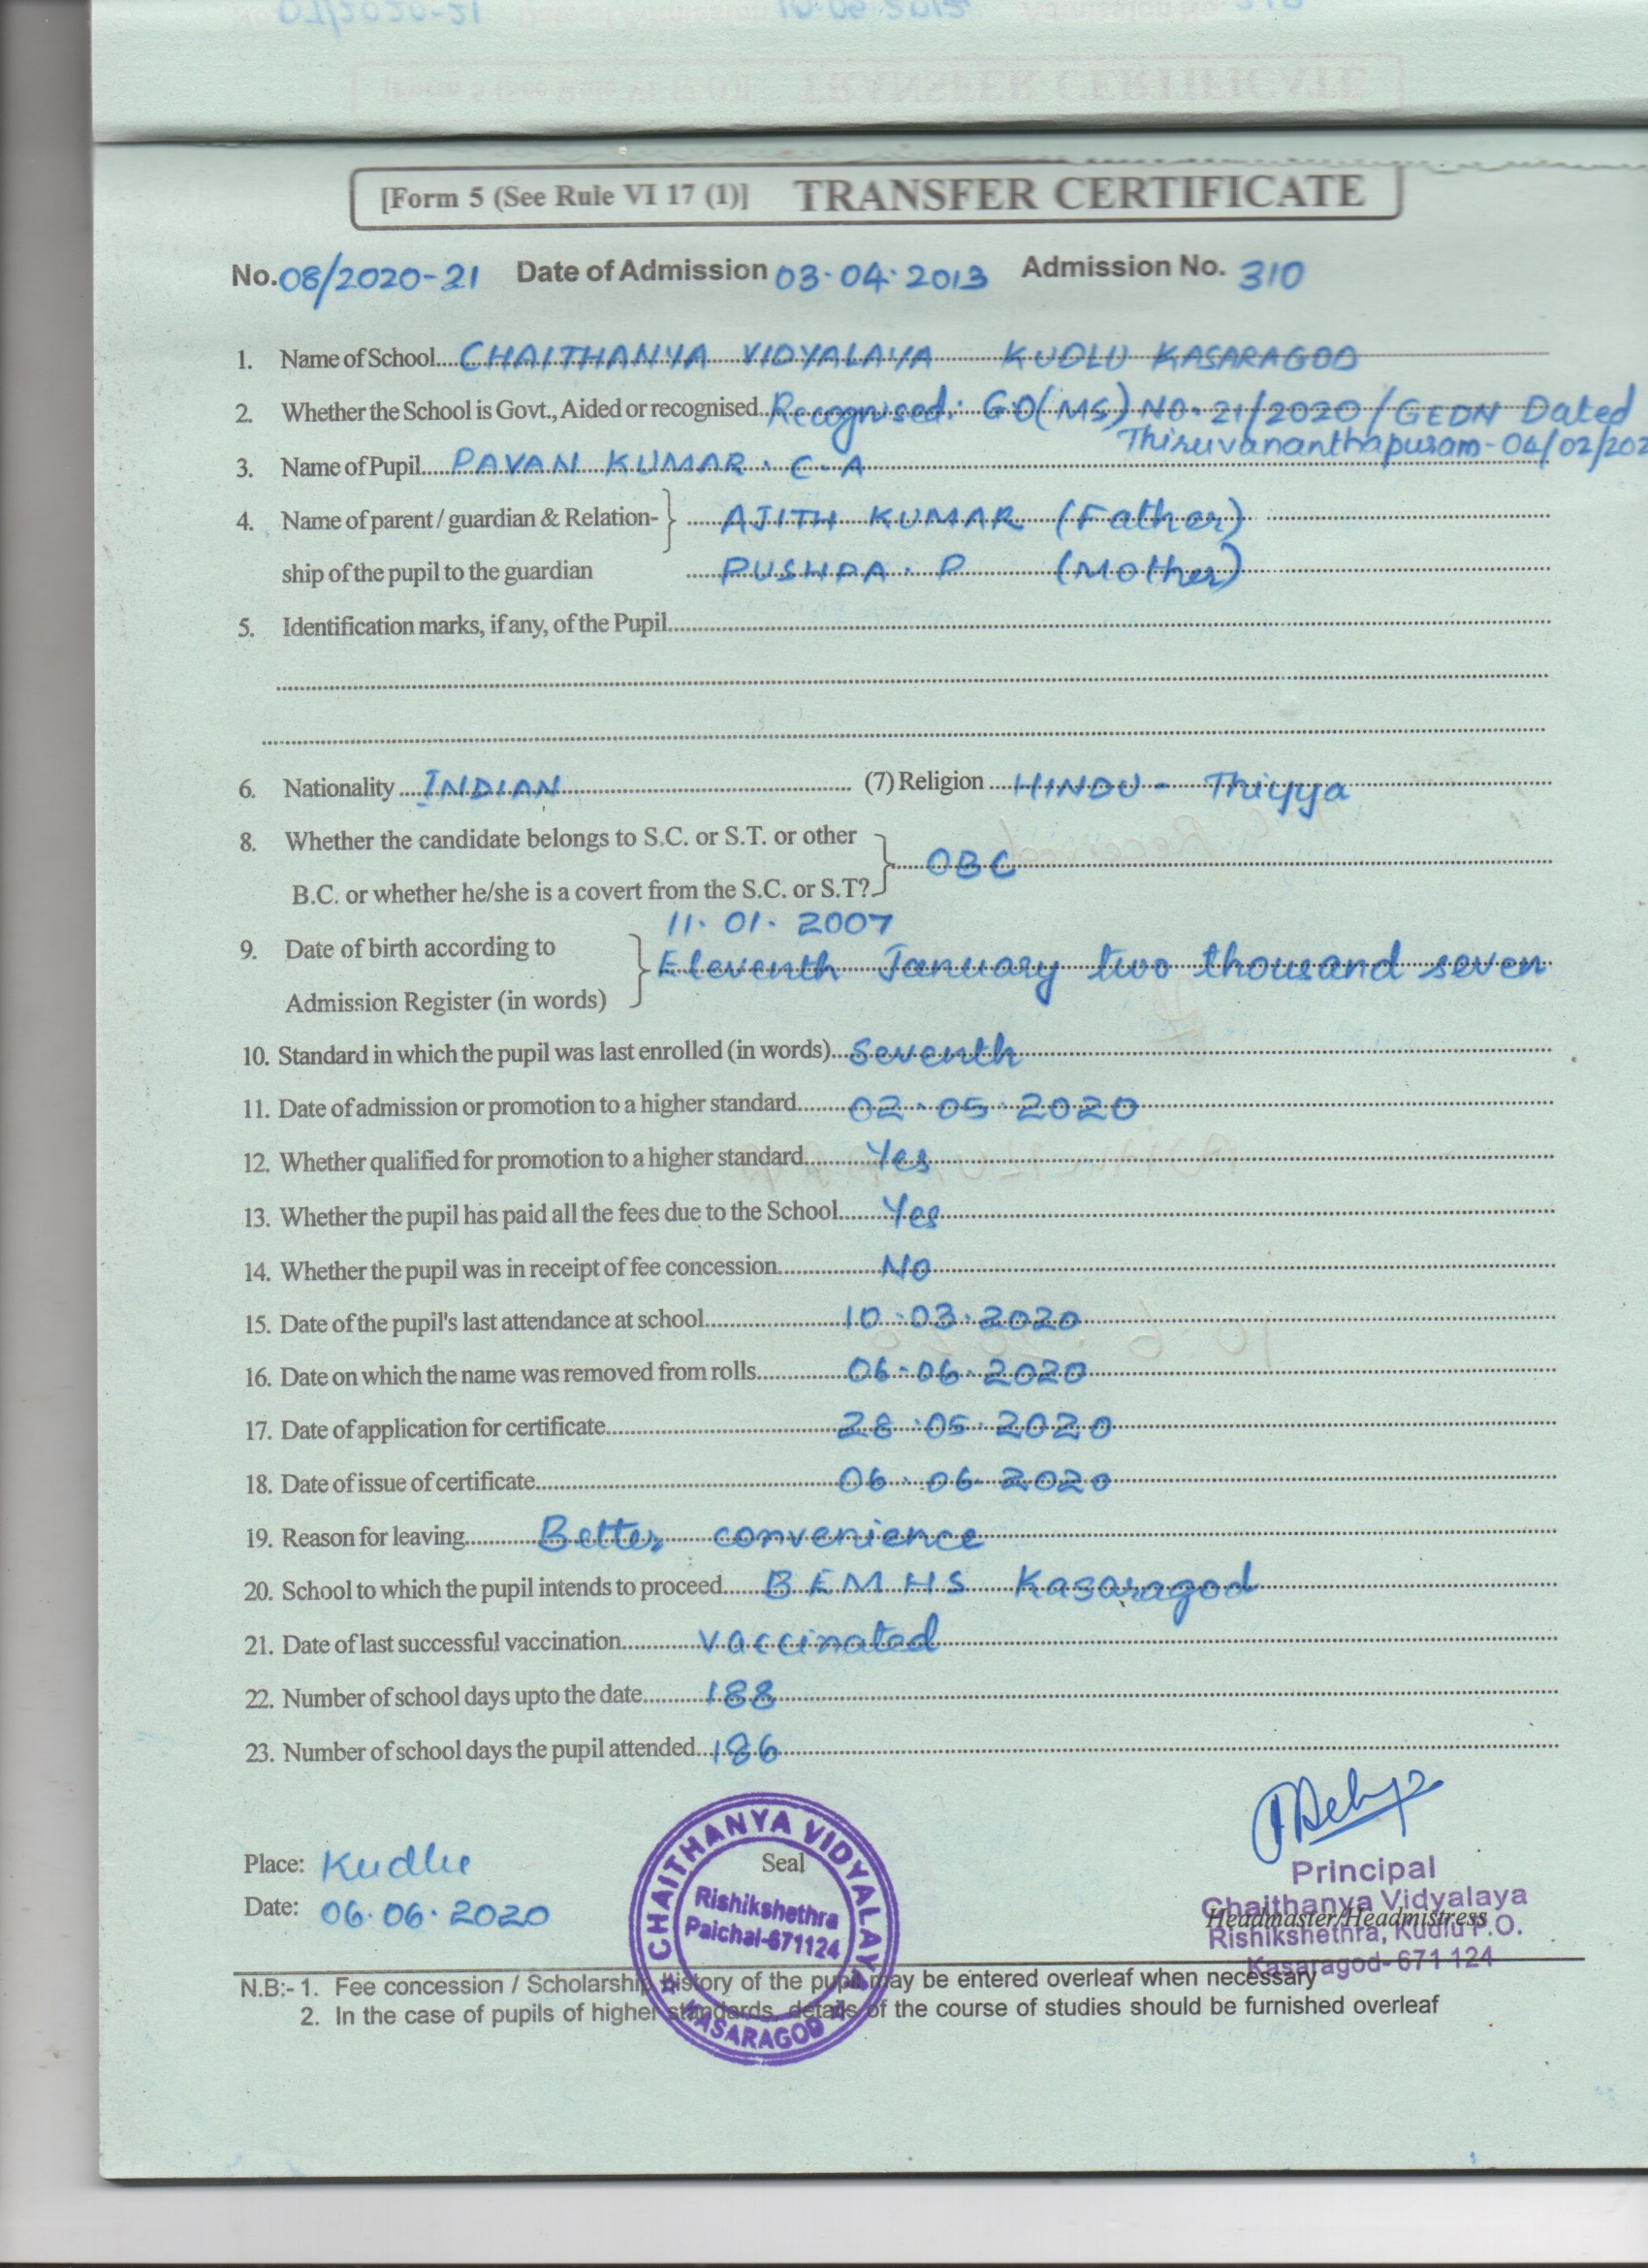 [Form 5 (See Rule VI 17 (1)] TRANSFER CERTIFICATE
No. 08/2020-21 Date of Admission 03.04.2013 Admission No. 310
1. Name of School CHAITHANYA VIDYALAYA KUDLU KASARAGOD
2. Whether the School is Govt., Aided or recognised Recognised: GO(MS) NO. 21/2020/GEDN Dated
Thiruvananthapuram-04/02/202
3. Name of Pupil PAVAN KUMAR. C.A
4. Name of parent / guardian & Relation- AJITH KUMAR (Father)
ship of the pupil to the guardian PUSHPA. P (Mother)
5. Identification marks, if any, of the Pupil
6. Nationality INDIAN (7) Religion HINDU - Thiyya
8. Whether the candidate belongs to S.C. or S.T. or other
B.C. or whether he/she is a covert from the S.C. or S.T? OBC
11.01.2007
9. Date of birth according to Eleventh January two thousand seven
Admission Register (in words)
10. Standard in which the pupil was last enrolled (in words) Seventh
11. Date of admission or promotion to a higher standard 02.05.2020
12. Whether qualified for promotion to a higher standard Yes
13. Whether the pupil has paid all the fees due to the School Yes
14. Whether the pupil was in receipt of fee concession No
15. Date of the pupil's last attendance at school 10.03.2020
16. Date on which the name was removed from rolls 06.06.2020
17. Date of application for certificate 28.05.2020
18. Date of issue of certificate 06.06.2020
19. Reason for leaving Better convenience
20. School to which the pupil intends to proceed B E M H S Kasaragod
21. Date of last successful vaccination vaccinated
22. Number of school days upto the date 188
23. Number of school days the pupil attended 186
Place: Kudlu
Date: 06.06.2020
Seal
CHAITHANYA VIDYALAYA
Rishikshethra
Paichal-671124
KASARAGOD
Principal
Chaithanya Vidyalaya
Headmaster/Headmistress
Rishikshethra, Kudlu P.O.
Kasaragod-671 124
N.B:- 1. Fee concession / Scholarship history of the pupil may be entered overleaf when necessary
2. In the case of pupils of higher standards, details of the course of studies should be furnished overleaf